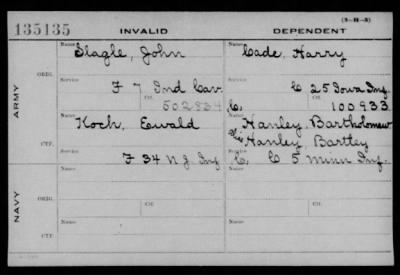 (3-H-3)
135135 INVALID DEPENDENT
Name Name
Slagle, John Cade, Harry
ARMY
ORIG. Service Service
F 7 Ind Cav. C 25 Iowa Inf.
Ctf. Ctf.
502834 C, 100933.
Name Name
Koch, Ewald Hanley, Bartholomew
Hanley, Bartley
CTF. Service Service
F 34 N J Inf C, C 5 Minn Inf.
NAVY
Name Name
ORIG. Ctf. Ctf.
Name Name
CTF.